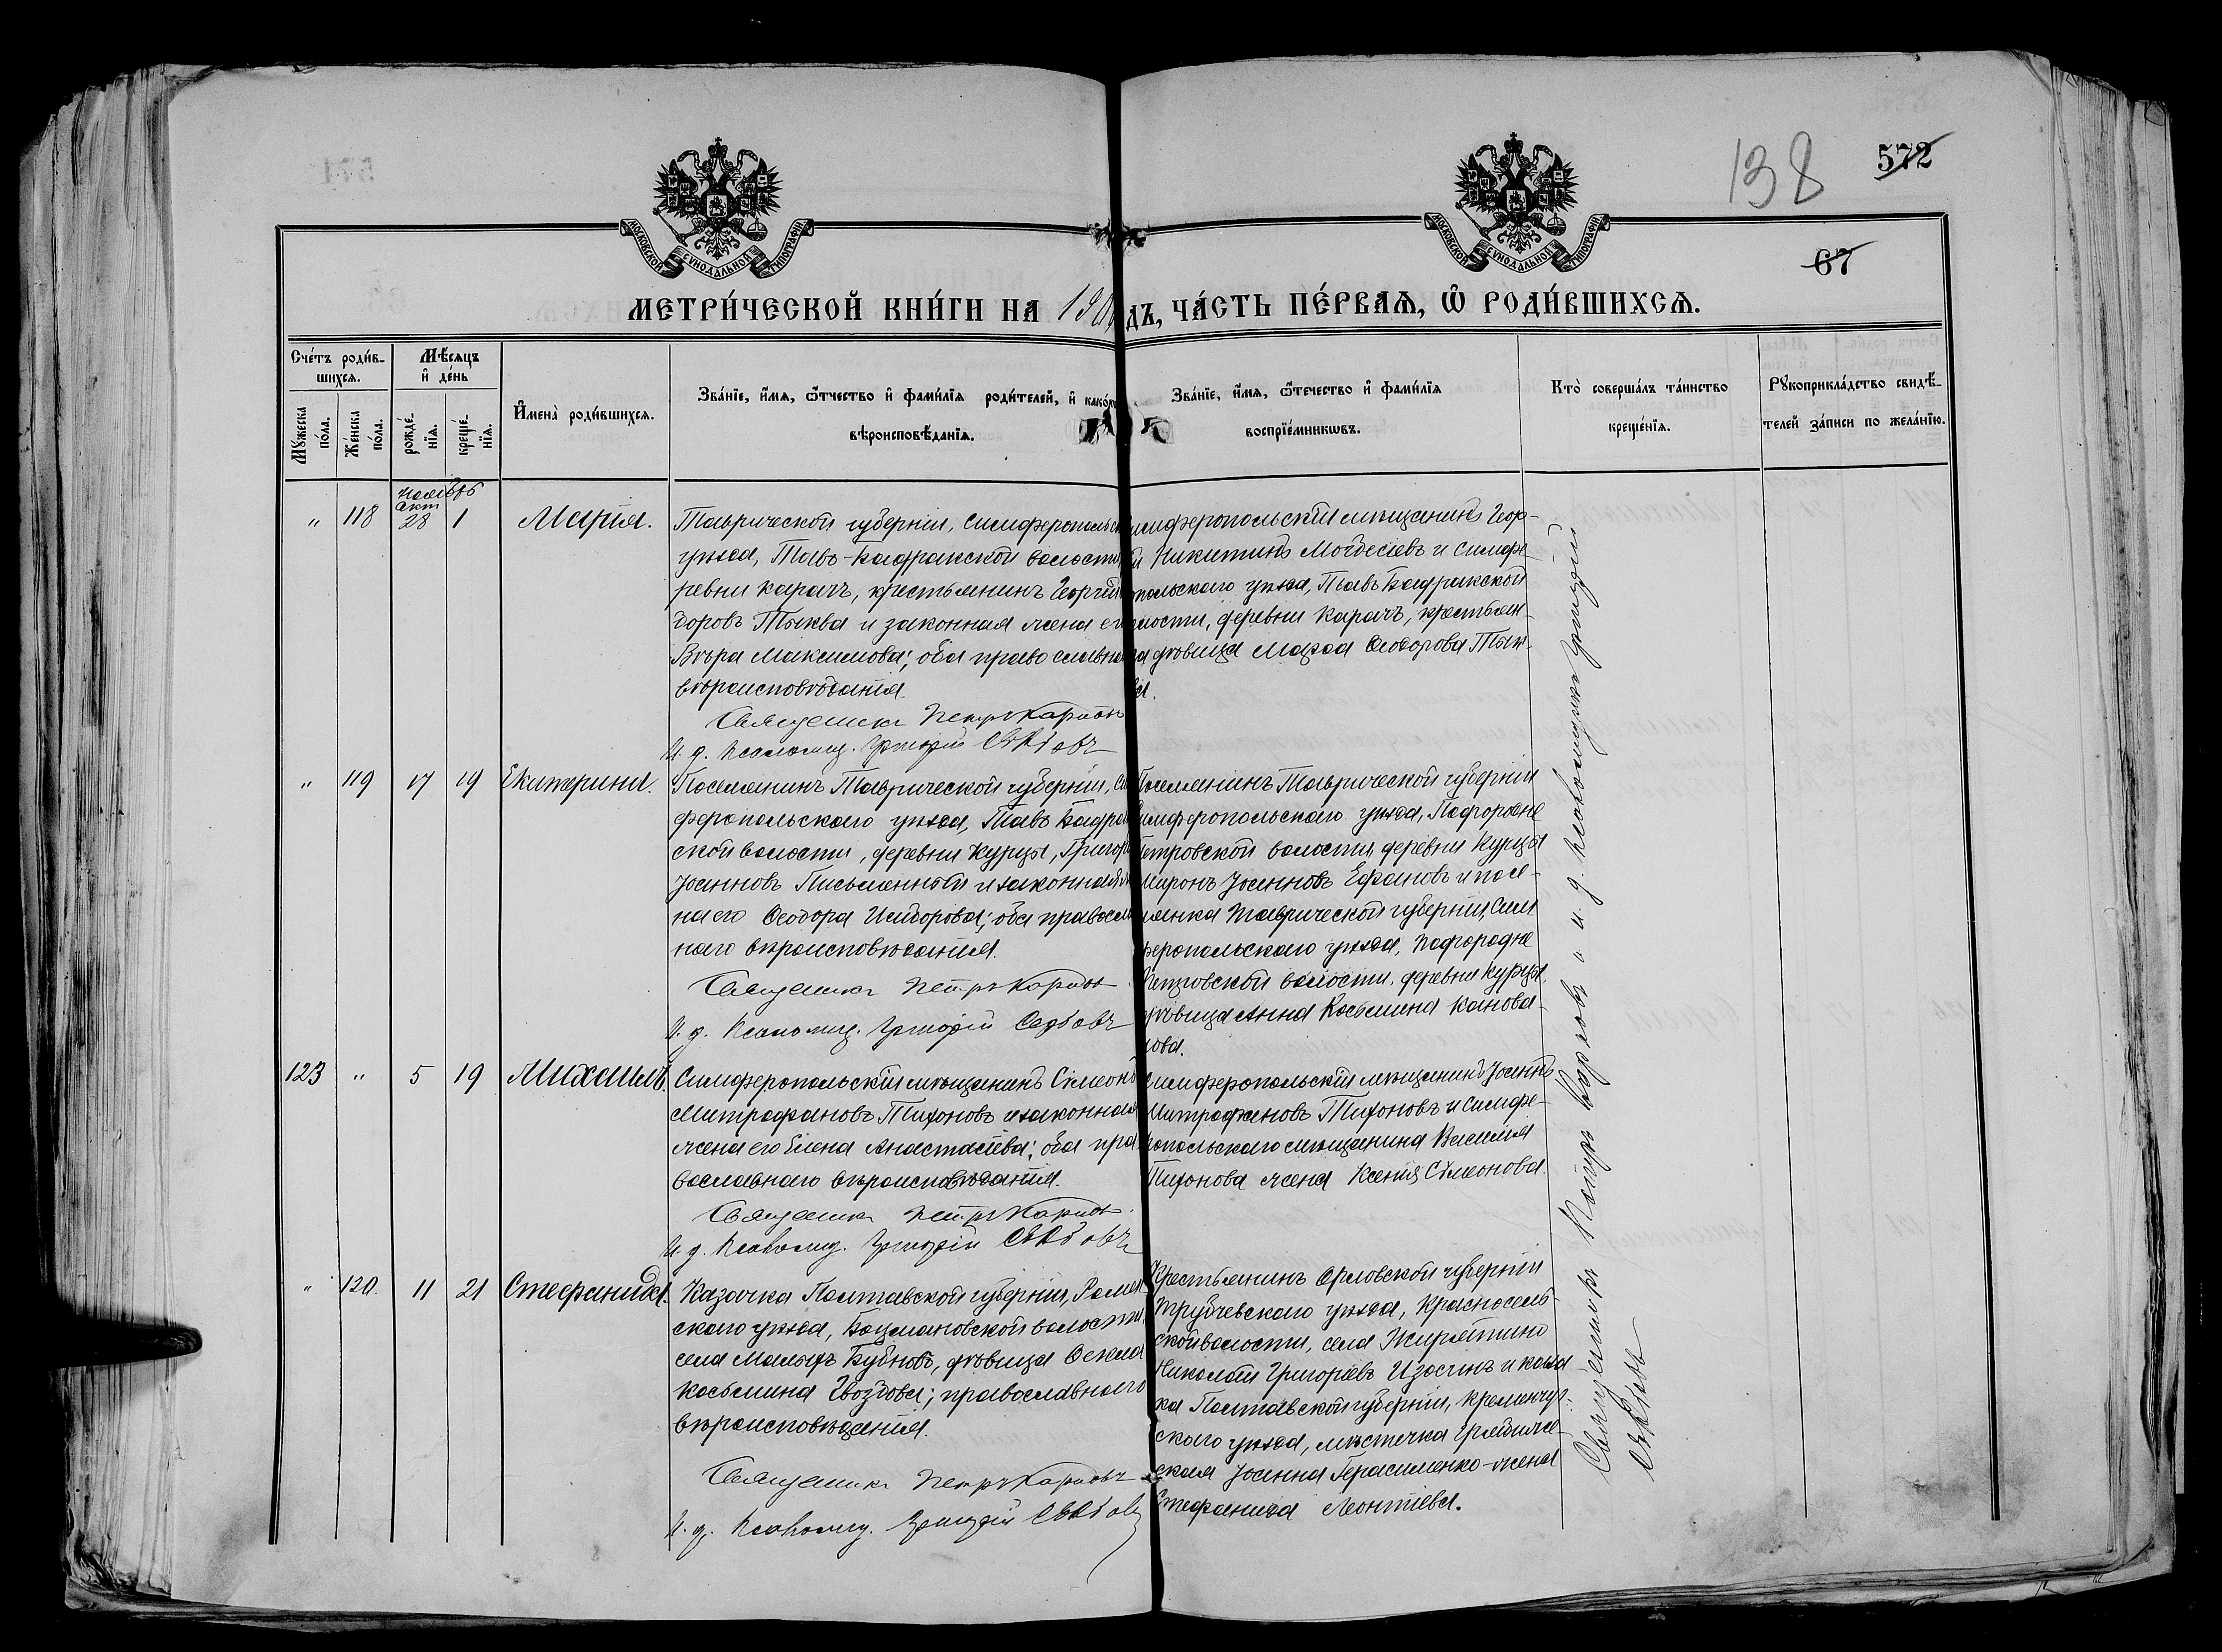 138
572
67
МОСКОВСКОЙ СУНОДАЛЬНОЙ ТИПОГРАФІИ
МОСКОВСКОЙ СУНОДАЛЬНОЙ ТИПОГРАФІИ
МЕТРИ́ЧЕСКОЙ КНИ́ГИ НА 190 ДЪ, ЧА́СТЬ ПЕ́РВАѦ, Ѿ РОДИ́ВШИХСѦ.
Сче́тъ роди́в-
шихсѧ.
Мꙋжеска по́ла.
Же́нска по́ла.
Мѣ́сѧцъ
и҆ де́нь
рожде́нїѧ.
креще́нїѧ.
И҆мена̀ роди́вшихсѧ.
Зва́нїе, и҆́мѧ, ѻ҆́тчество и҆ фами́лїѧ роди́телей, и҆ како́г
вѣроисповѣ́данїѧ.
Зва́нїе, и҆́мѧ, ѻ҆те́чество и҆ фами́лїѧ
воспрїе́мникѡвъ.
Кто̀ соверша́лъ та́инство
креще́нїѧ.
Рꙋкоприкла́дство свидѣ́-
телей за́писи по жела́нїю.
Ноябрь
" 118 Окт 28 1 Марія.
Таврической губерніи, Симферопольск
уѣзда, Тавъ-Бадракской волости,
ревни Карачъ, крестьянинъ Георгій
доровъ Тыква и законная жена е
Вѣра Максимова; оба православна
вѣроисповѣданія.
Священникъ Петръ Карповъ
И. д. Псаломщ. Григорій Сѣдовъ
имферопольскій мѣщанинъ Геор-
й Никитинъ Могдесіевъ и Симфе
опольскаго уѣзда, Тавъ Бадракской
лости, деревни Карачъ, крестьян-
а дѣвица Марѳа Ѳеодорова Тык-
ва.
" 119 17 19 Екатерина.
Поселянинъ Таврической губерніи, Си
феропольскаго уѣзда, Тавъ Бадрак
ской волости, деревни Курцы, Григор
Іоанновъ Письменный и законная ж
на его Ѳеодора Исидорова; оба правосл
наго вѣроисповѣданія.
Священникъ Петръ Карповъ
И. д. Псаломщ. Григорій Сѣдовъ
Поселянинъ Таврической губерніи
Симферопольскаго уѣзда, Подгородне
Петровской волости, деревни Курцы
Миронъ Іоанновъ Ефановъ и посе-
лянка Таврической губерніи, Сим
феропольскаго уѣзда, Подгородне
Петровской волости, деревни Курцы,
дѣвица Анна Косьмина Канова-
лова.
123 " 5 19 Михаилъ.
Симферопольскій мѣщанинъ Сѵмеонъ
Митрофановъ Тихоновъ и законная
жена его Елена Анастасіева; оба пра
вославнаго вѣроисповѣданія.
Священникъ Петръ Карповъ.
И. д. Псаломщ. Григорій Сѣдовъ
Симферопольскій мѣщанинъ Іоаннъ
Митрофановъ Тихоновъ и Симфе-
ропольскаго мѣщанина Василія
Тихонова жена Ксенія Сѵмеонова.
" 120. 11 21 Стефанида.
Казачка Полтавской губерніи, Ромен
скаго уѣзда, Бацмановской волости,
села Малыхъ Бубновъ, дѣвица Ѳекла
Косьмина Гвоздова; православнаго
вѣроисповѣданія.
Священникъ Петръ Карповъ
И. д. Псаломщ. Григорій Сѣдовъ
Крестьянинъ Орловской губерніи
Трубчевскаго уѣзда, Красносель-
ской волости, села Жирятино
Николай Григоріевъ Изосинъ и казач
ка Полтавской губерніи, Кременчуг-
скаго уѣзда, мѣстечка
Іоанна Герасименко-жена
Стефанида Леонтіева.
Священникъ Петръ Карповъ и и. д. псаломщика Григорій
Сѣдовъ